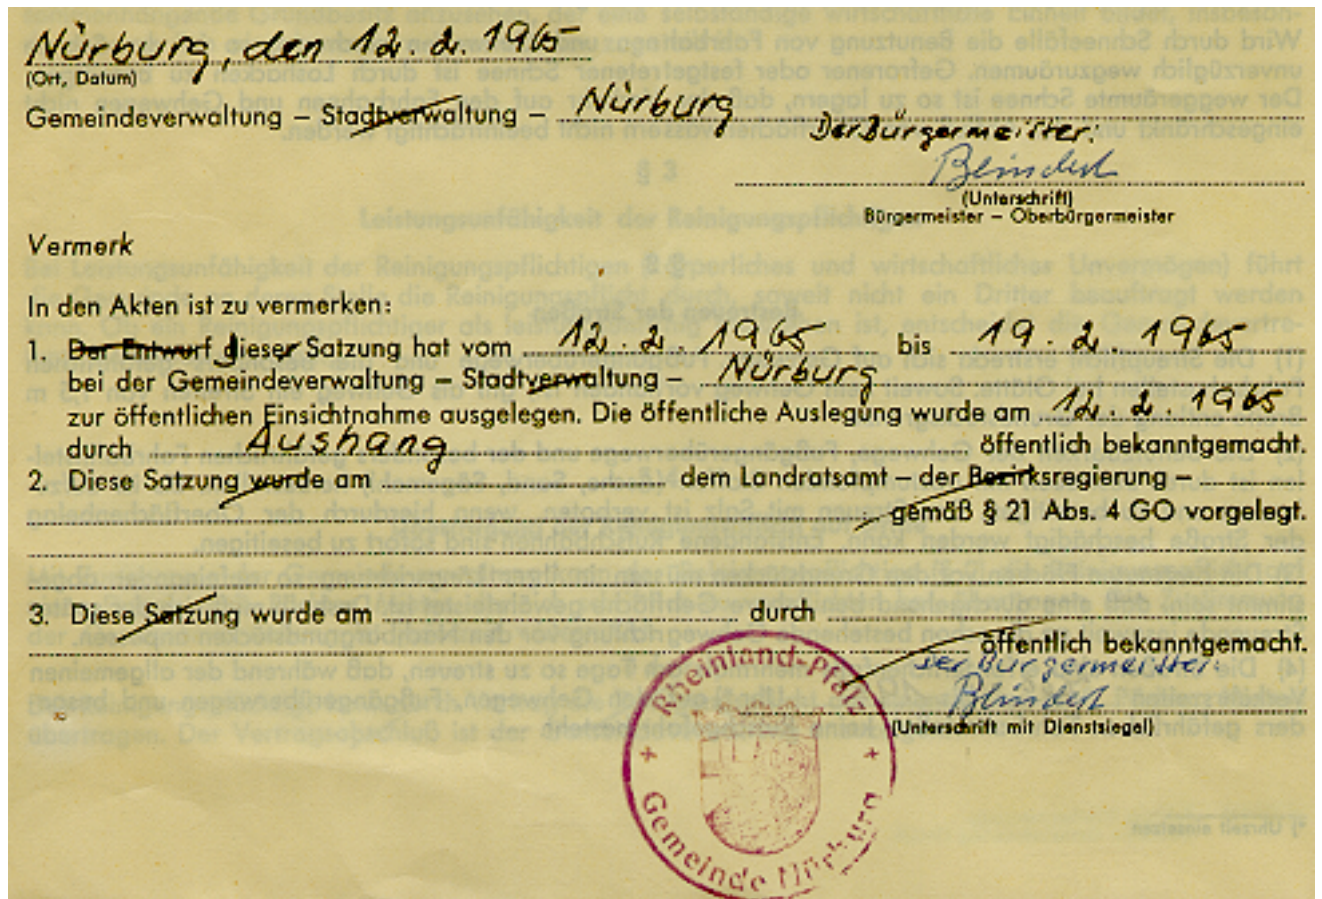 Nürburg, den 12. 2. 1965
(Ort, Datum)
Gemeindeverwaltung – Stadtverwaltung – Nürburg
Der Bürgermeister:
(Unterschrift)
Bürgermeister – Oberbürgermeister
Vermerk
In den Akten ist zu vermerken:
1. Der Entwurf dieser Satzung hat vom 12. 2. 1965 bis 19. 2. 1965
bei der Gemeindeverwaltung – Stadtverwaltung – Nürburg
zur öffentlichen Einsichtnahme ausgelegen. Die öffentliche Auslegung wurde am 12. 2. 1965
durch Aushang öffentlich bekanntgemacht.
2. Diese Satzung wurde am dem Landratsamt – der Bezirksregierung –
gemäß § 21 Abs. 4 GO vorgelegt.
3. Diese Satzung wurde am durch
öffentlich bekanntgemacht.
Der Bürgermeister:
(Unterschrift mit Dienstsiegel)
Rheinland-Pfalz
Gemeinde Nürburg